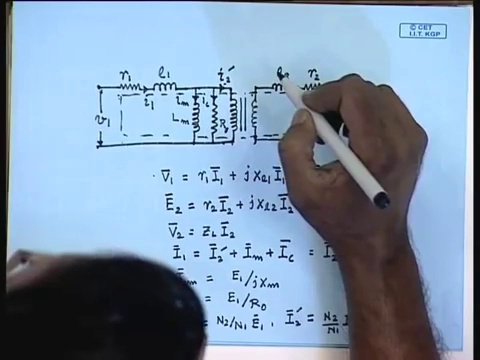 © CET
I.I.T. KGP
r₁ l₁ i₂′ l₂ r₂
i₁ iₘ i_c
v₁ Lₘ R₀
V̄₁ = r₁ Ī₁ + j x_l1 Ī₁
Ē₂ = r₂ Ī₂ + j x_l2 Ī₂
V̄₂ = Z_L Ī₂
Ī₁ = Ī₂′ + Īₘ + Ī_c = Ī₂
= E₁/jxₘ
= E₁/R₀
= N₂/N₁ Ē₁ , Ī₂′ = N₂/N₁